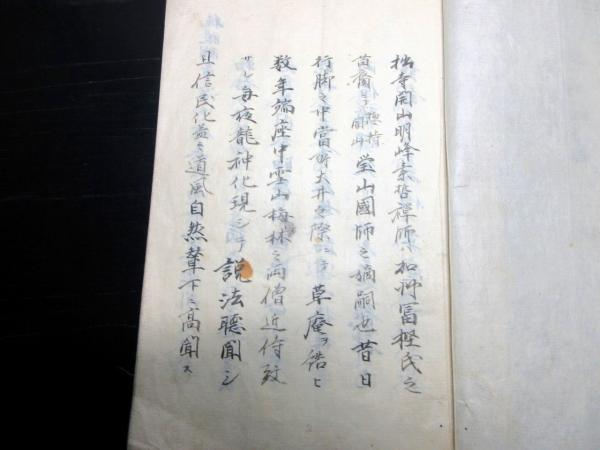 拙寺開山明峰素哲禅師ハ加州冨樫氏之
苗裔ニテ惣持開山瑩山國師之嫡嗣也昔日
行脚之中當所大井之際ニテ草庵ヲ借ヒ
数年端座中雲山梅林之両僧近侍致
サレ毎夜龍神化現シテ説法聴聞シ
且信民化益之道風自然輦下ニ高聞ス